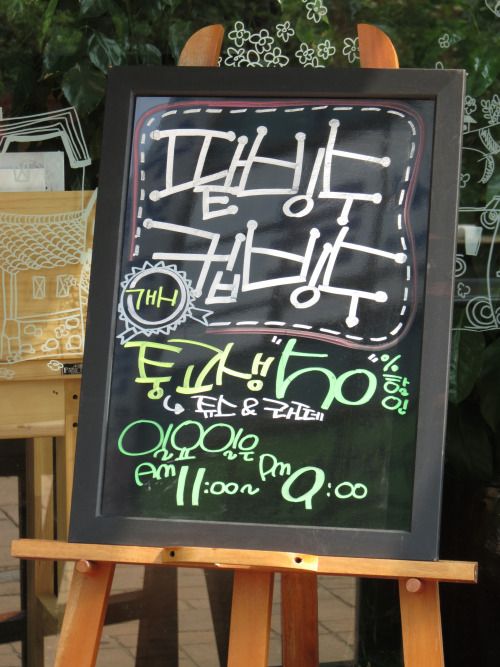 팥빙수
컵빙수
개시
통교생 "50" % 할인
→ 쥬스 & 라떼
일요일은
AM 11:00~ PM 9:00